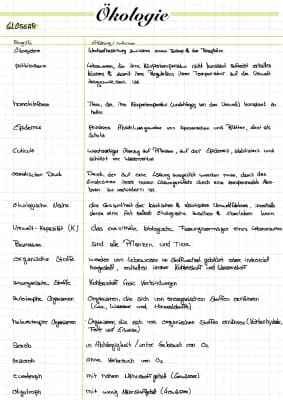 Ökologie
GLOSSAR
Begriff
Ökosystem Wechselbeziehung zwischen einem Biotop & der Biozönose
poikilotherm Lebewesen, die ihre Körpertemperatur nicht konstant aufrecht erhalten
können & somit ihre Regulation ihrer Temperatur auf die Umwelt
angewiesen ist
homoiotherm Tiere, die ihre Körpertemperatur (unabhängig von der Umwelt) konstant zu
halten
Epidermis primäres Abschlussgewebe von Sprossachsen und Blättern, dient als
Schutz
Cuticula wachsartiger Überzug auf Pflanzen, auf der Epidermis, stabilisiert und
schützt vor Wasserverlust
osmotischer Druck Druck, der auf eine Lösung ausgeübt werden muss, damit das
Einströmen eines reinen Lösungsmittels durch eine semipermeable Membran
zu verhindern ist
ökologische Nische die Gesamtheit der biotischen & abiotischen Umweltfaktoren, innerhalb
derer eine Art selbst ökologische Funktion & überleben kann
Umwelt-Kapazität (K) das maximale biologische Fassungsvermögen eines Lebensraumes
Biomasse sind alle Pflanzen und Tiere
organische Stoffe werden von Lebewesen im Stoffwechsel gebildet oder industriell
hergestellt, enthalten immer Kohlenstoff und Wasserstoff
anorganische Stoffe Kohlenstoff freie Verbindungen
autotrophe Organismen Organismen, die sich von anorganischen Stoffen ernähren
(CO₂, Wasser und Mineralstoffe)
heterotropher Organismen Organismen, die sich von organischen Stoffen ernähren (Kohlenhydrate,
Fette und Eiweiße)
aerob in Abhängigkeit / unter Gebrauch von O₂
anaerob ohne Verbrauch von O₂
eutroph mit hohem Nährstoffgehalt (Gewässer)
oligotroph mit wenig Nährstoffgehalt (Gewässer)